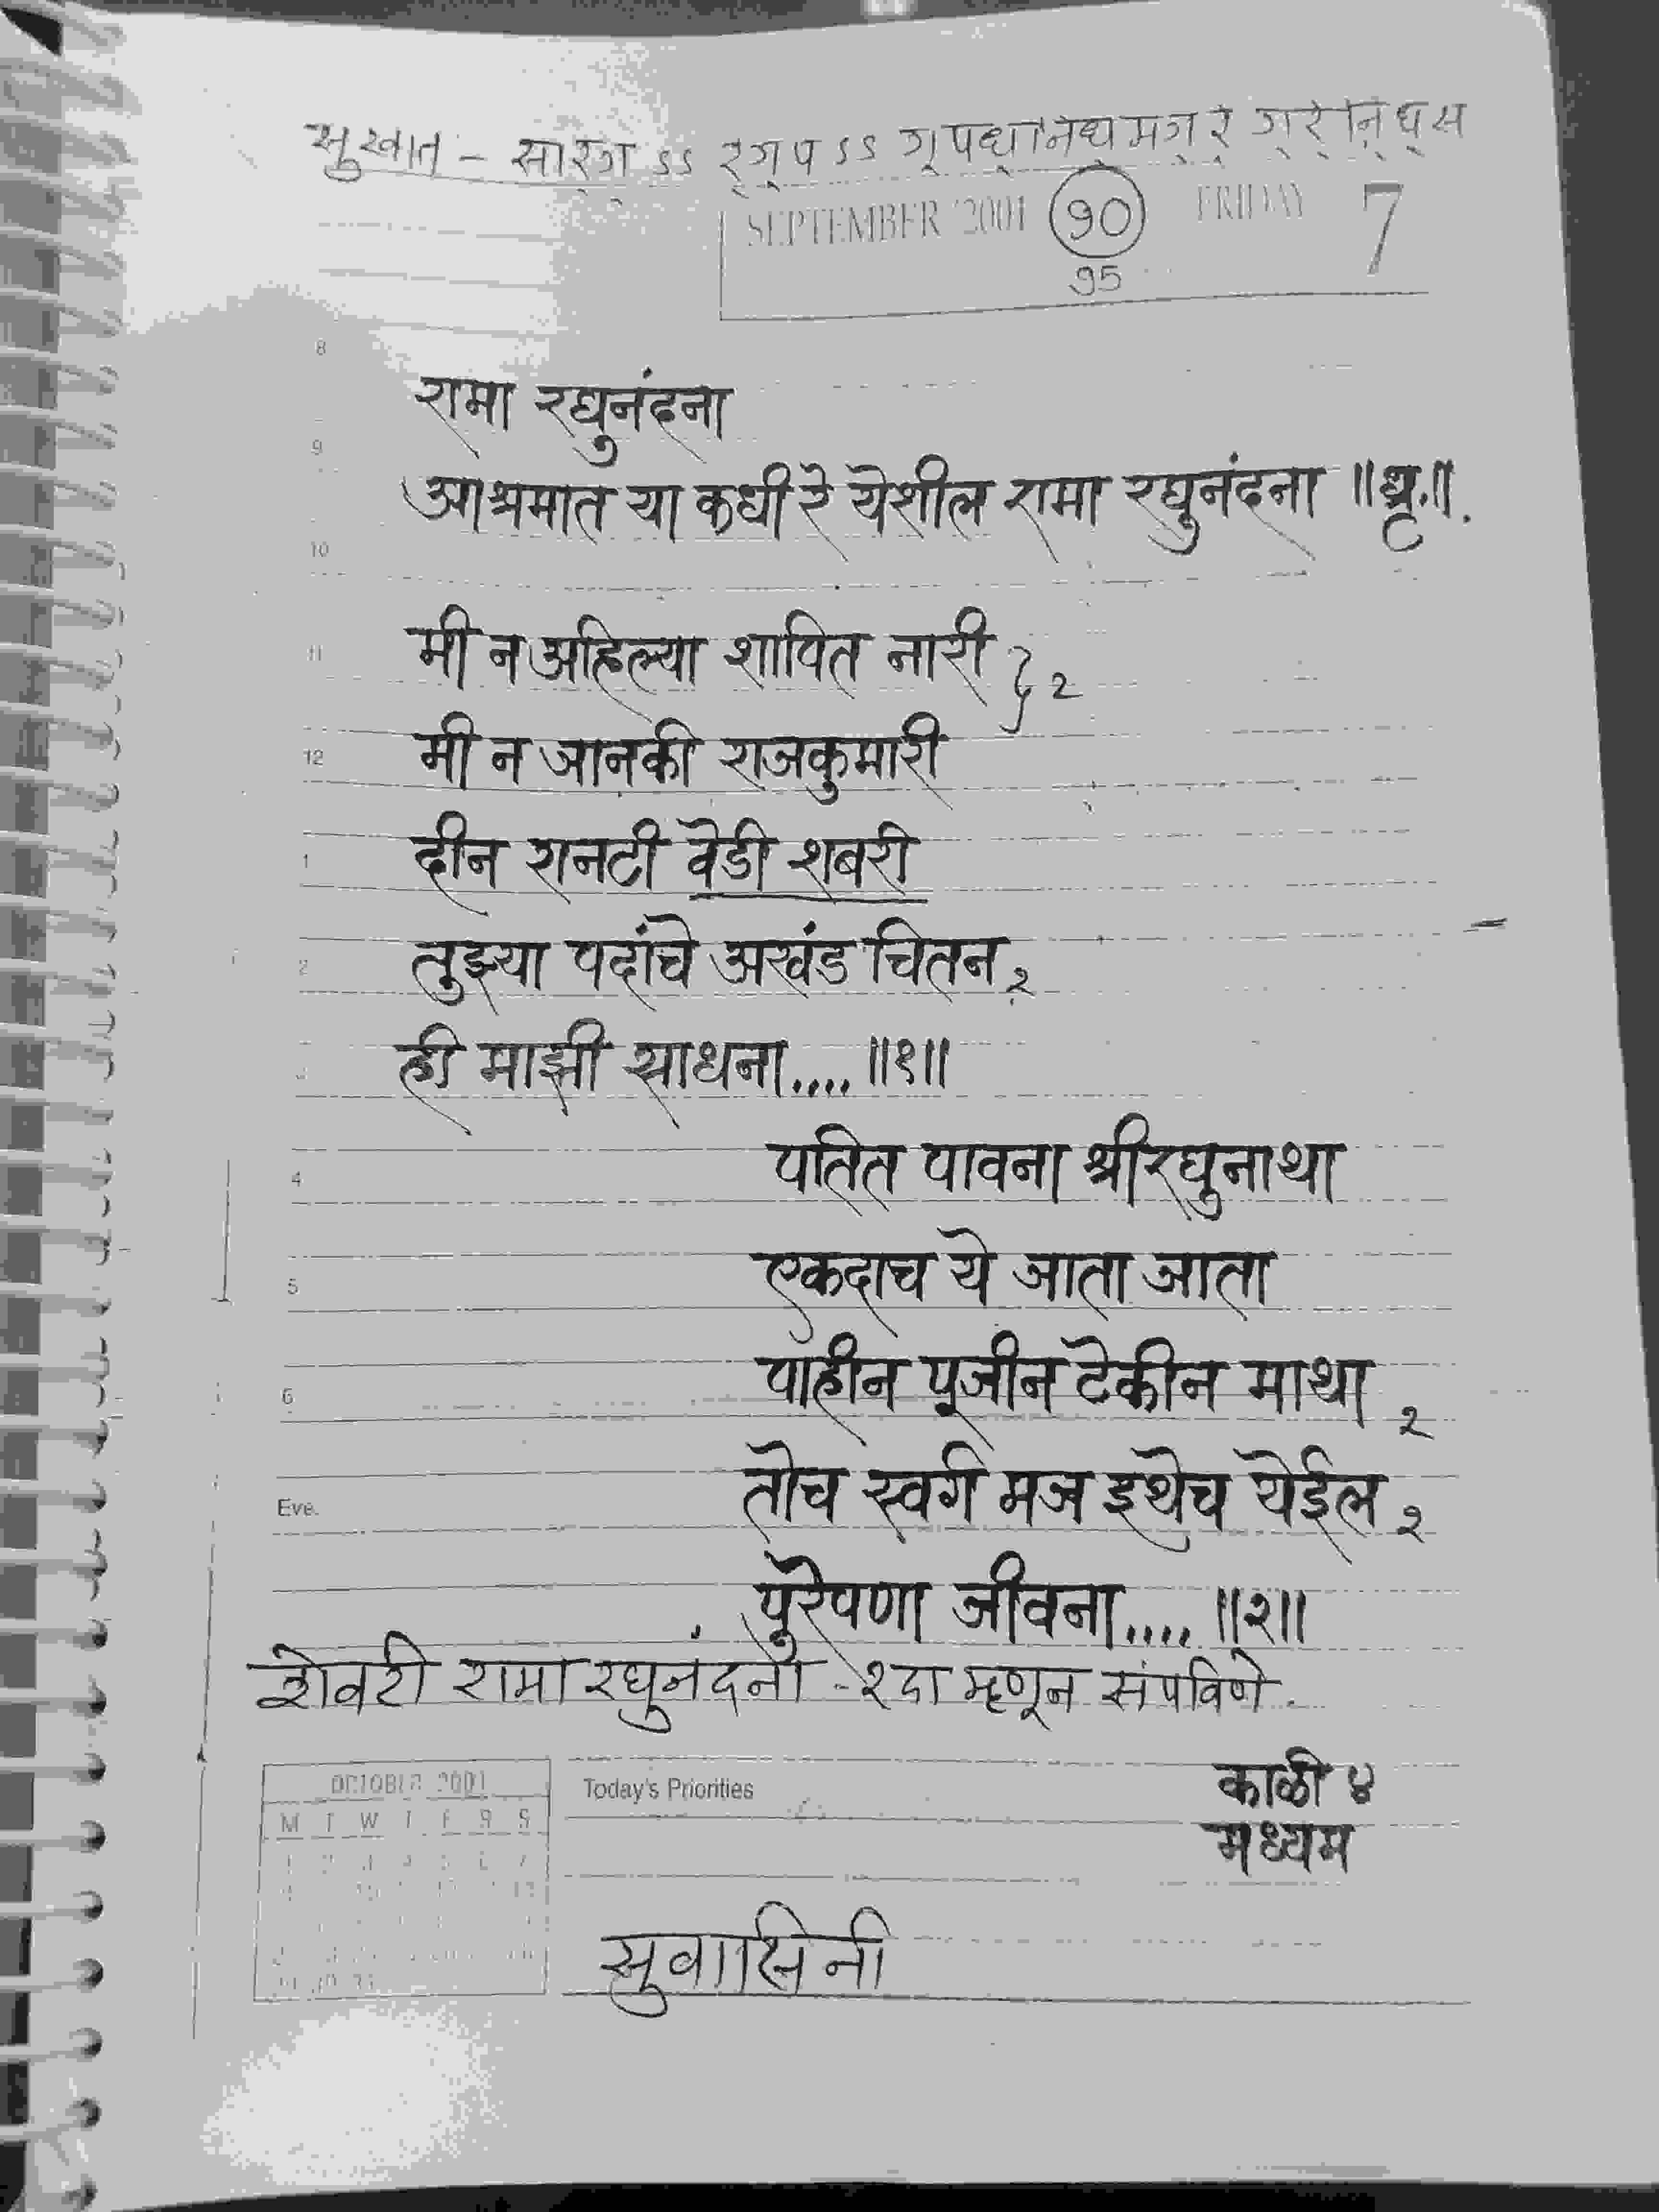 सुखात - सारग ऽऽ रगप ऽऽ गपधनिधमगर गरेनिधस
SEPTEMBER 2001 (१०) FRIDAY 7
१५
8
रामा रघुनंदना
9
आश्रमात या कधी रे येशील रामा रघुनंदना ॥धृ.॥.
10
11 मी न अहिल्या शापित नारी } 2
12 मी न जानकी राजकुमारी
1 दीन रानटी वेडी शबरी
2 तुझ्या पदांचे अखंड चिंतन २
ही माझी साधना.... ॥१॥
4 पतित पावना श्रीरघुनाथा
5 एकदाच ये जाता जाता
6 पाहीन पूजीन टेकीन माथा २
Eve. तोच स्वर्ग मज इथेच येईल २
पुरेपणा जीवना.... ॥२॥
शेवटी रामा रघुनंदना - २दा म्हणून संपविणे.
OCTOBER 2001 Today's Priorities काळी ४
M T W T F S S मध्यम
सुवासिनी